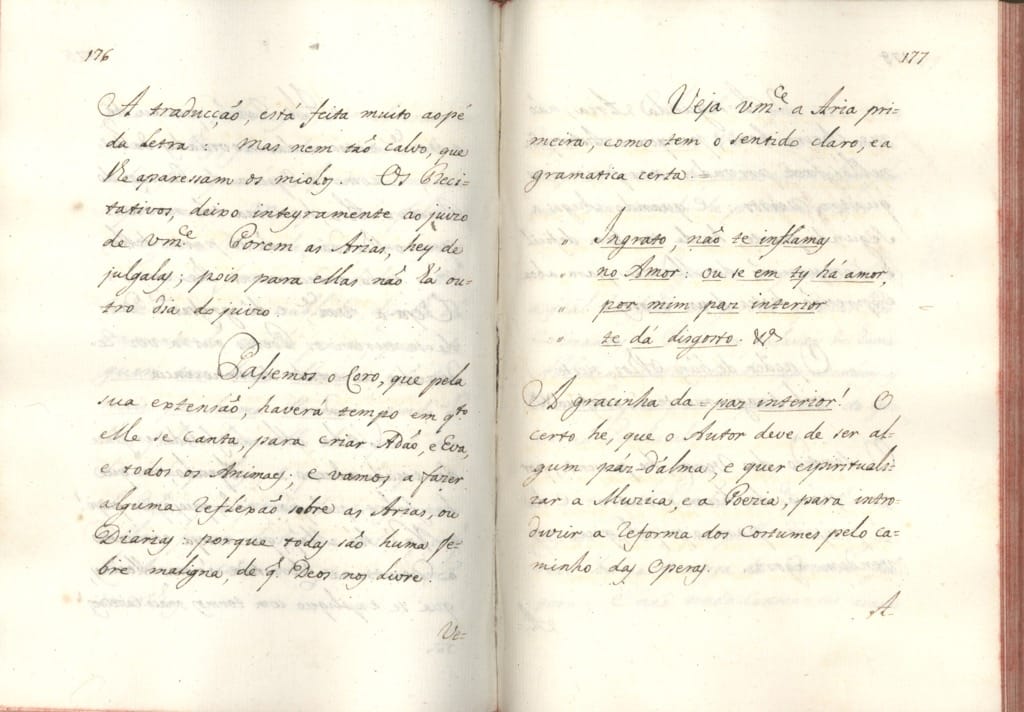 176
A traducçaõ, está feita muito aopé
da Letra: Mas nem taõ calvo, que
lhe aparessam os miolos. Os Reci=
tativos, deixo integramente ao juizo
de vm.ce Porem as Arias, hey de
julgalas; pois para ellas naõ há ou=
tro dia do juizo.
Passemos o Coro, que pela
sua extensaõ, haverá tempo em q.to
elle se canta, para criar Adaõ, e Eva,
e todos os Animaes; e vamos a fazer
alguma reflexaõ sobre as Arias, ou
Diarias: porque todas saõ huma fe=
bre maligna, de q. Deos nos livre!
Ve=
177
Veja vm.ce a Aria pri=
meira, como tem o sentido claro, e a
gramatica certa. =
" Ingrato, naõ te inflamas
no Amor: ou se em ty há amor,
" por mim paz interior
" te dá disgosto. &a
A gracinha da = paz interior! O
certo he, que o Autor deve de ser al=
gum páz-d'alma, e quer espirituali=
zar a Muzica, e a Poezia, para intro=
duzir a reforma dos Costumes pelo ca=
minho das Operas.
A